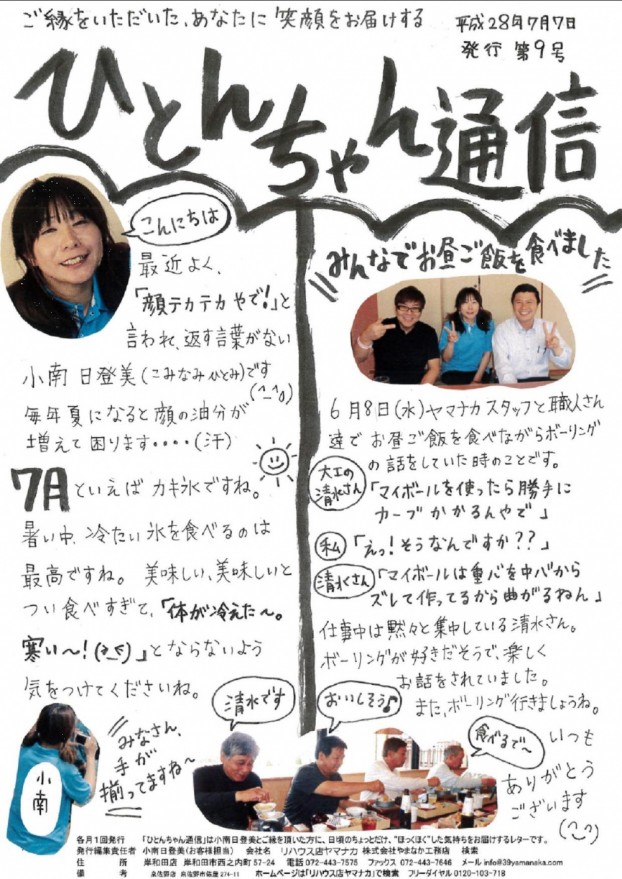 ご縁をいただいた、あなたに笑顔をお届けする
平成28年7月7日
発行 第9号
ひとんちゃん通信
こんにちは
最近よく、
「顔テカテカやで！」と
言われ、返す言葉がない
小南 日登美(こみなみひとみ)です
(^_^;)
毎年夏になると顔の油分が
増えて困ります・・・・(汗)
7月といえばカキ氷ですね。
暑い中、冷たい氷を食べるのは
最高ですね。 美味しい、美味しいと
つい食べすぎて、「体が冷えた〜。
寒い〜！(>_<)」とならないよう
気をつけてくださいね。
小南
みなさん、
手が
揃ってますね〜
みんなでお昼ご飯を食べました
6月8日(水)ヤマナカスタッフと職人さん
達でお昼ご飯を食べながらボーリング
の話をしていた時のことです。
大工の
清水さん
「マイボールを使ったら勝手に
カーブかかるんやで」
私
「えっ！そうなんですか？？」
清水さん
「マイボールは重バを中バから
ズレて作ってるから曲がるねん」
仕事中は黙々と集中している清水さん。
ボーリングが好きだそうで、楽しく
お話をされていました。
また、ボーリング行きましょうね。
清水です
おいしそう♪
食べるで〜
いつも
ありがとう
ございます
(^_^)
各月1回発行 「ひとんちゃん通信」は小南日登美とご縁を頂いた方に、日頃のちょっとだけ、“ほっくほく”した気持ちをお届けするレターです。
発行編集責任者 小南日登美(お客様担当) 会社名 リハウス店ヤマナカ 株式会社やまなか工務店 検索
住 所 岸和田店 岸和田市西之内町57-24 電話072-443-7575 ファックス 072-443-7646 メール info@39yamanaka.com
備 考 泉佐野店 泉佐野市笠屋274-11 ホームページは「リハウス店ヤマナカ」で検索 フリーダイヤル 0120-103-718